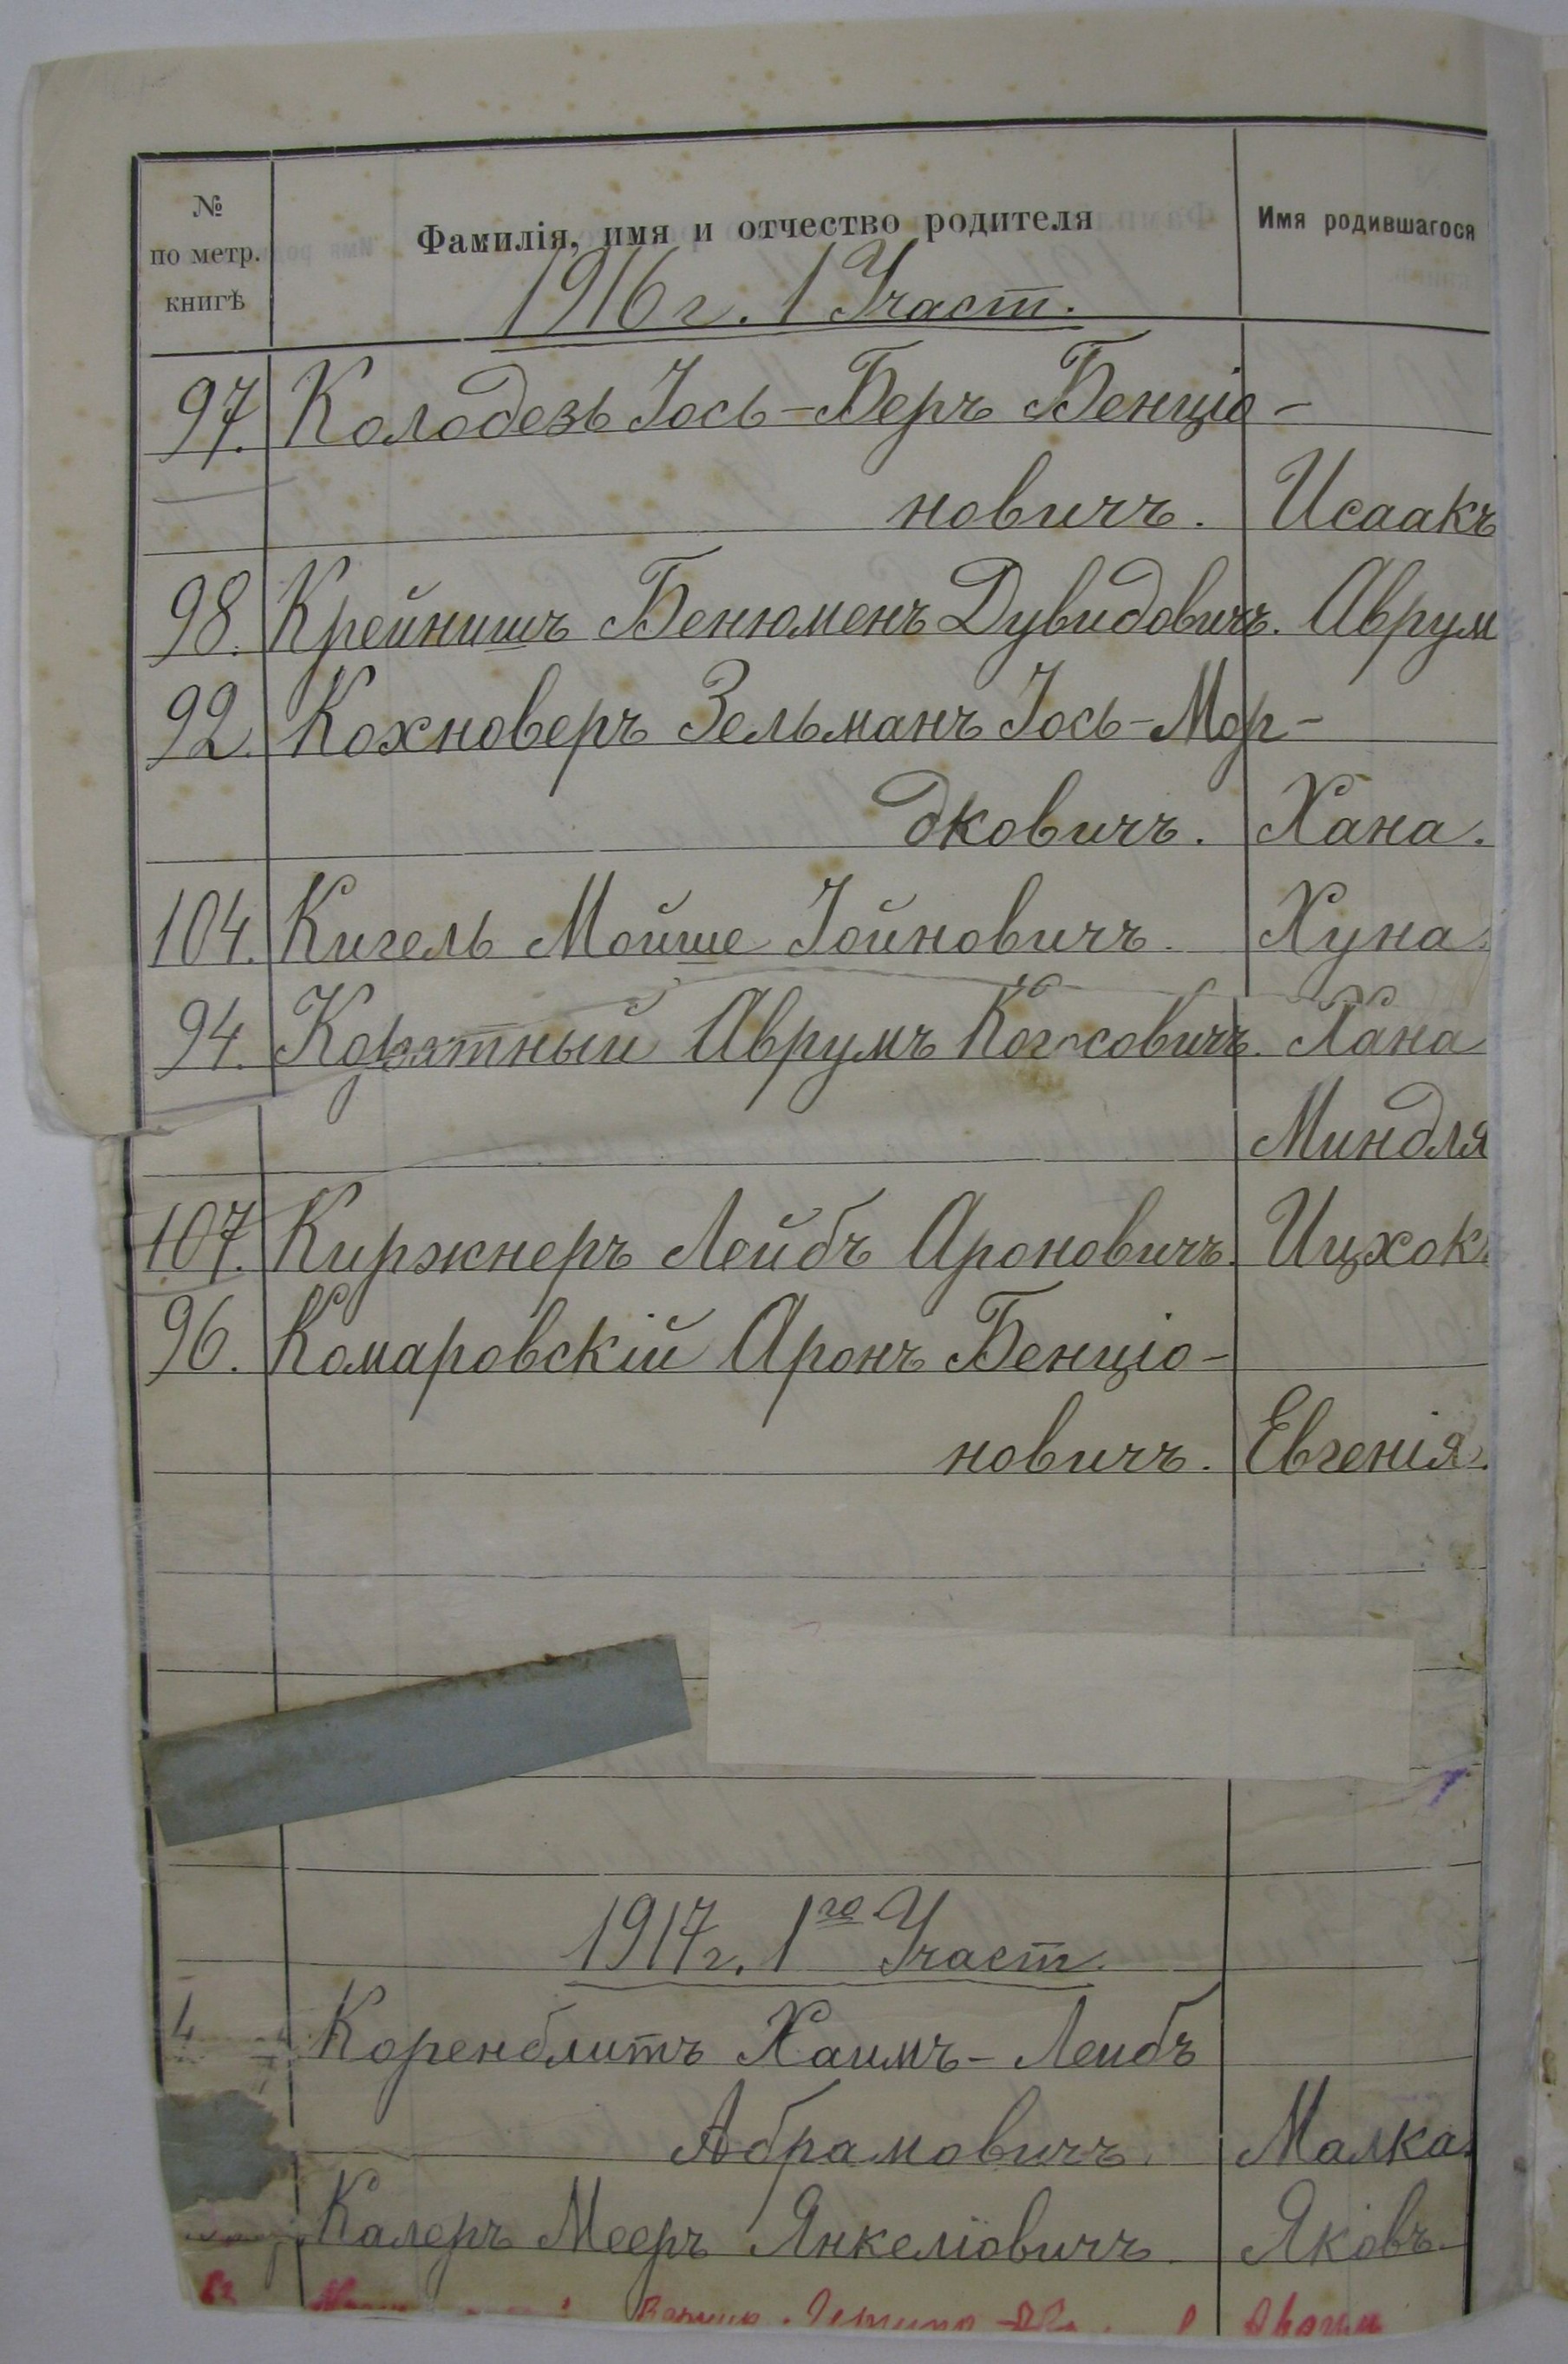 № по метр. книгѣ Фамилія, имя и отчество родителя Имя родившагося
1916 г. 1 Участ.
97. Колодезь Іось-Беръ Бенціо-
новичъ. Исаакъ
98. Крейнишъ Бенюменъ Дувидовичъ. Аврум
92. Кохноверъ Зельманъ Іось-Мор-
дковичъ. Хана.
104. Кигель Мойше Іойновичъ. Хуна.
94. Аврумъ Хана
Миндля
107. Киржнеръ Лейбъ Ароновичъ. Ицхокъ
96. Комаровскій Аронъ Бенціо-
новичъ. Евгенія.
1917 г. 1го Участ.
4 Коренблитъ Хаимъ-Лейбъ
Абрамовичъ. Малка.
Калеръ Мееръ Янкеліовичъ. Яковъ.